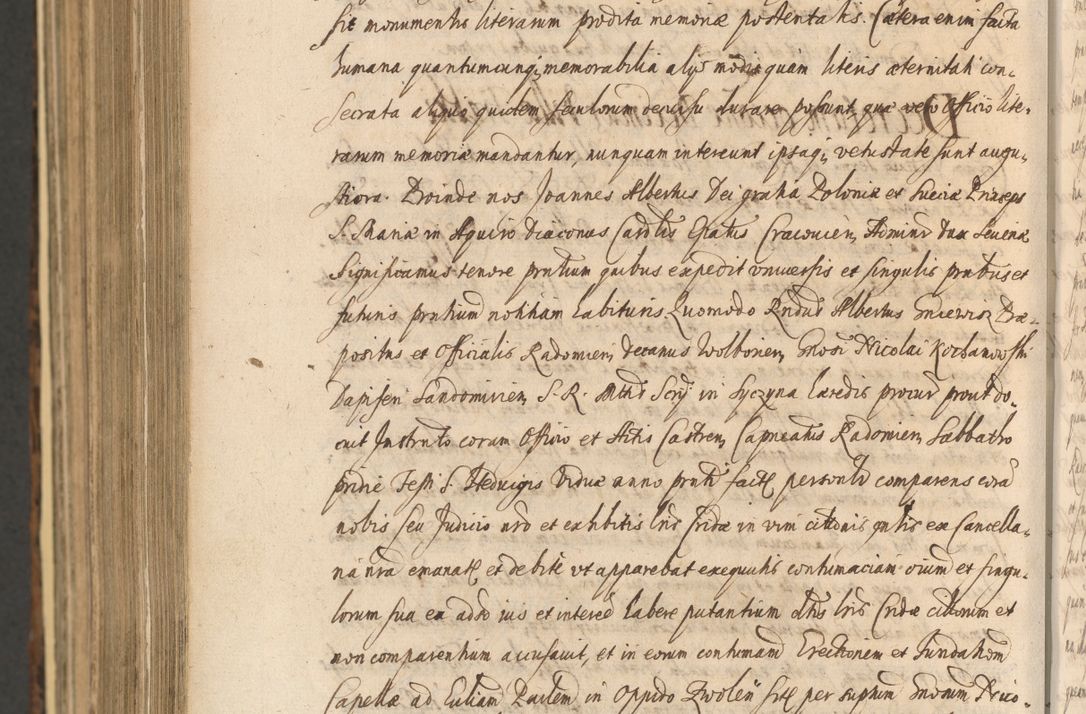 sit monumentis literarum prodita memoriæ posteritatis. Cætera enim facta
humana quantumcunq; memorabilia alijs modis quam literis æternitati con-
secrata aliquo quidem seculorum decursu durare possunt, quæ vero Officio lite-
rarum memoriæ mandantur, nunquam intereunt ipsaq; vetustate sunt augu-
stiora. Proinde nos Joannes Albertus Dei gratia Poloniæ et Sueciæ Princeps
S. Mariæ in Aquiro Diaconus Cardlis Epatus Cracouien, Administr Dux Seueriæ
Significamus tenore prntium quibus expedit vniuersis et singulis prntibus et
futuris prntium notitiam habituris Quomodo Rndus Albertus Præ-
positus et Officialis Radomien, decanus Wolborien, Gnosi Nicolai Kochanowski
Dapiferi Sandomirien, S. R. Mttis Scrij in Syczyna hæredis procur prout do-
cuit Instrnto coram Officio et Actis Castren, Capneatus Radomien, Sabbatho
pridie Festi S. Heduigis Viduæ anno prnti facto personlr comparens corã
nobis seu Judicio nro et exhibitis lris Cridæ in vim cittonis gnlis ex Cancella-
ria nra emanatis et debite vt apparebat exequutis contumaciam oium et singu-
lorum sua ea adre ius et interee habere putantium dtis lris Cridæ citorum et
non comparentium accusauit, et in eorum contumam Erectionem et Fundatiom
Capellæ ad Ecliam Parlem in Oppido Zwoleń sitæ per Gnosum Nico-